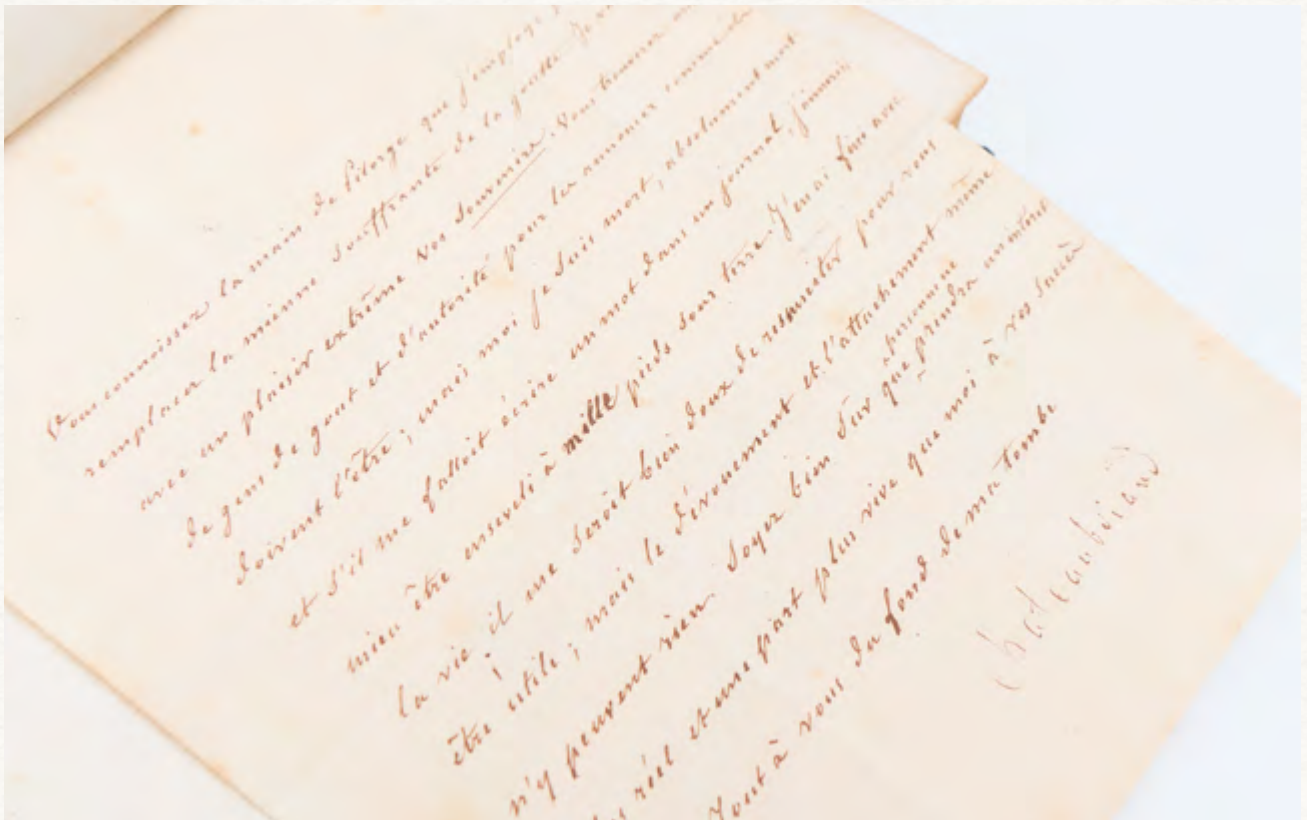 Vous connoissez la main de Pilorge que j'employe
remplacer la mienne souffrante de la goutte Je
avec un plaisir extrême vos souvenirs. Vous trouverez
de gens de gout et d'autorité pour les annoncer comme ils
doivent l'être ; mais moi je suis mort, absolument mort
et s'il me falloit écrire un mot dans un journal, j'aimerois
mieu être enseveli à mille pieds sous terre. J'en ai fini avec
la vie ; il me seroit bien doux de resusciter pour vous
être utile ; mais le dévouement et l'attachement même
n'y peuvent rien. Soyez bien sur que personne prendra un intérêt
réel et une part plus vive que moi à vos succès
Tout à vous du fond de ma tombe
Chateaubriand